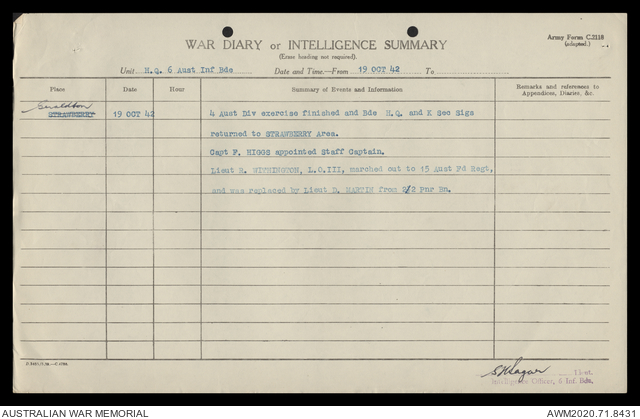 Army Form C.2118
(adapted.)
WAR DIARY or INTELLIGENCE SUMMARY
(Erase heading not required).
Unit H.Q. 6 Aust Inf Bde Date and Time.—From 19 OCT 42 To
Place Date Hour Summary of Events and Information Remarks and references to Appendices, Diaries, &c.
Geraldton
STRAWBERRY 19 OCT 42 4 Aust Div exercise finished and Bde H.Q. and K Sec Sigs
returned to STRAWBERRY Area.
Capt F. HIGGS appointed Staff Captain.
Lieut R. WITHINGTON, L.O.III, marched out to 15 Aust Fd Regt,
and was replaced by Lieut D. MARTIN from 2/2 Pnr Bn.
Lieut.
Intelligence Officer, 6 Inf. Bde.
AUSTRALIAN WAR MEMORIAL AWM2020.71.8431